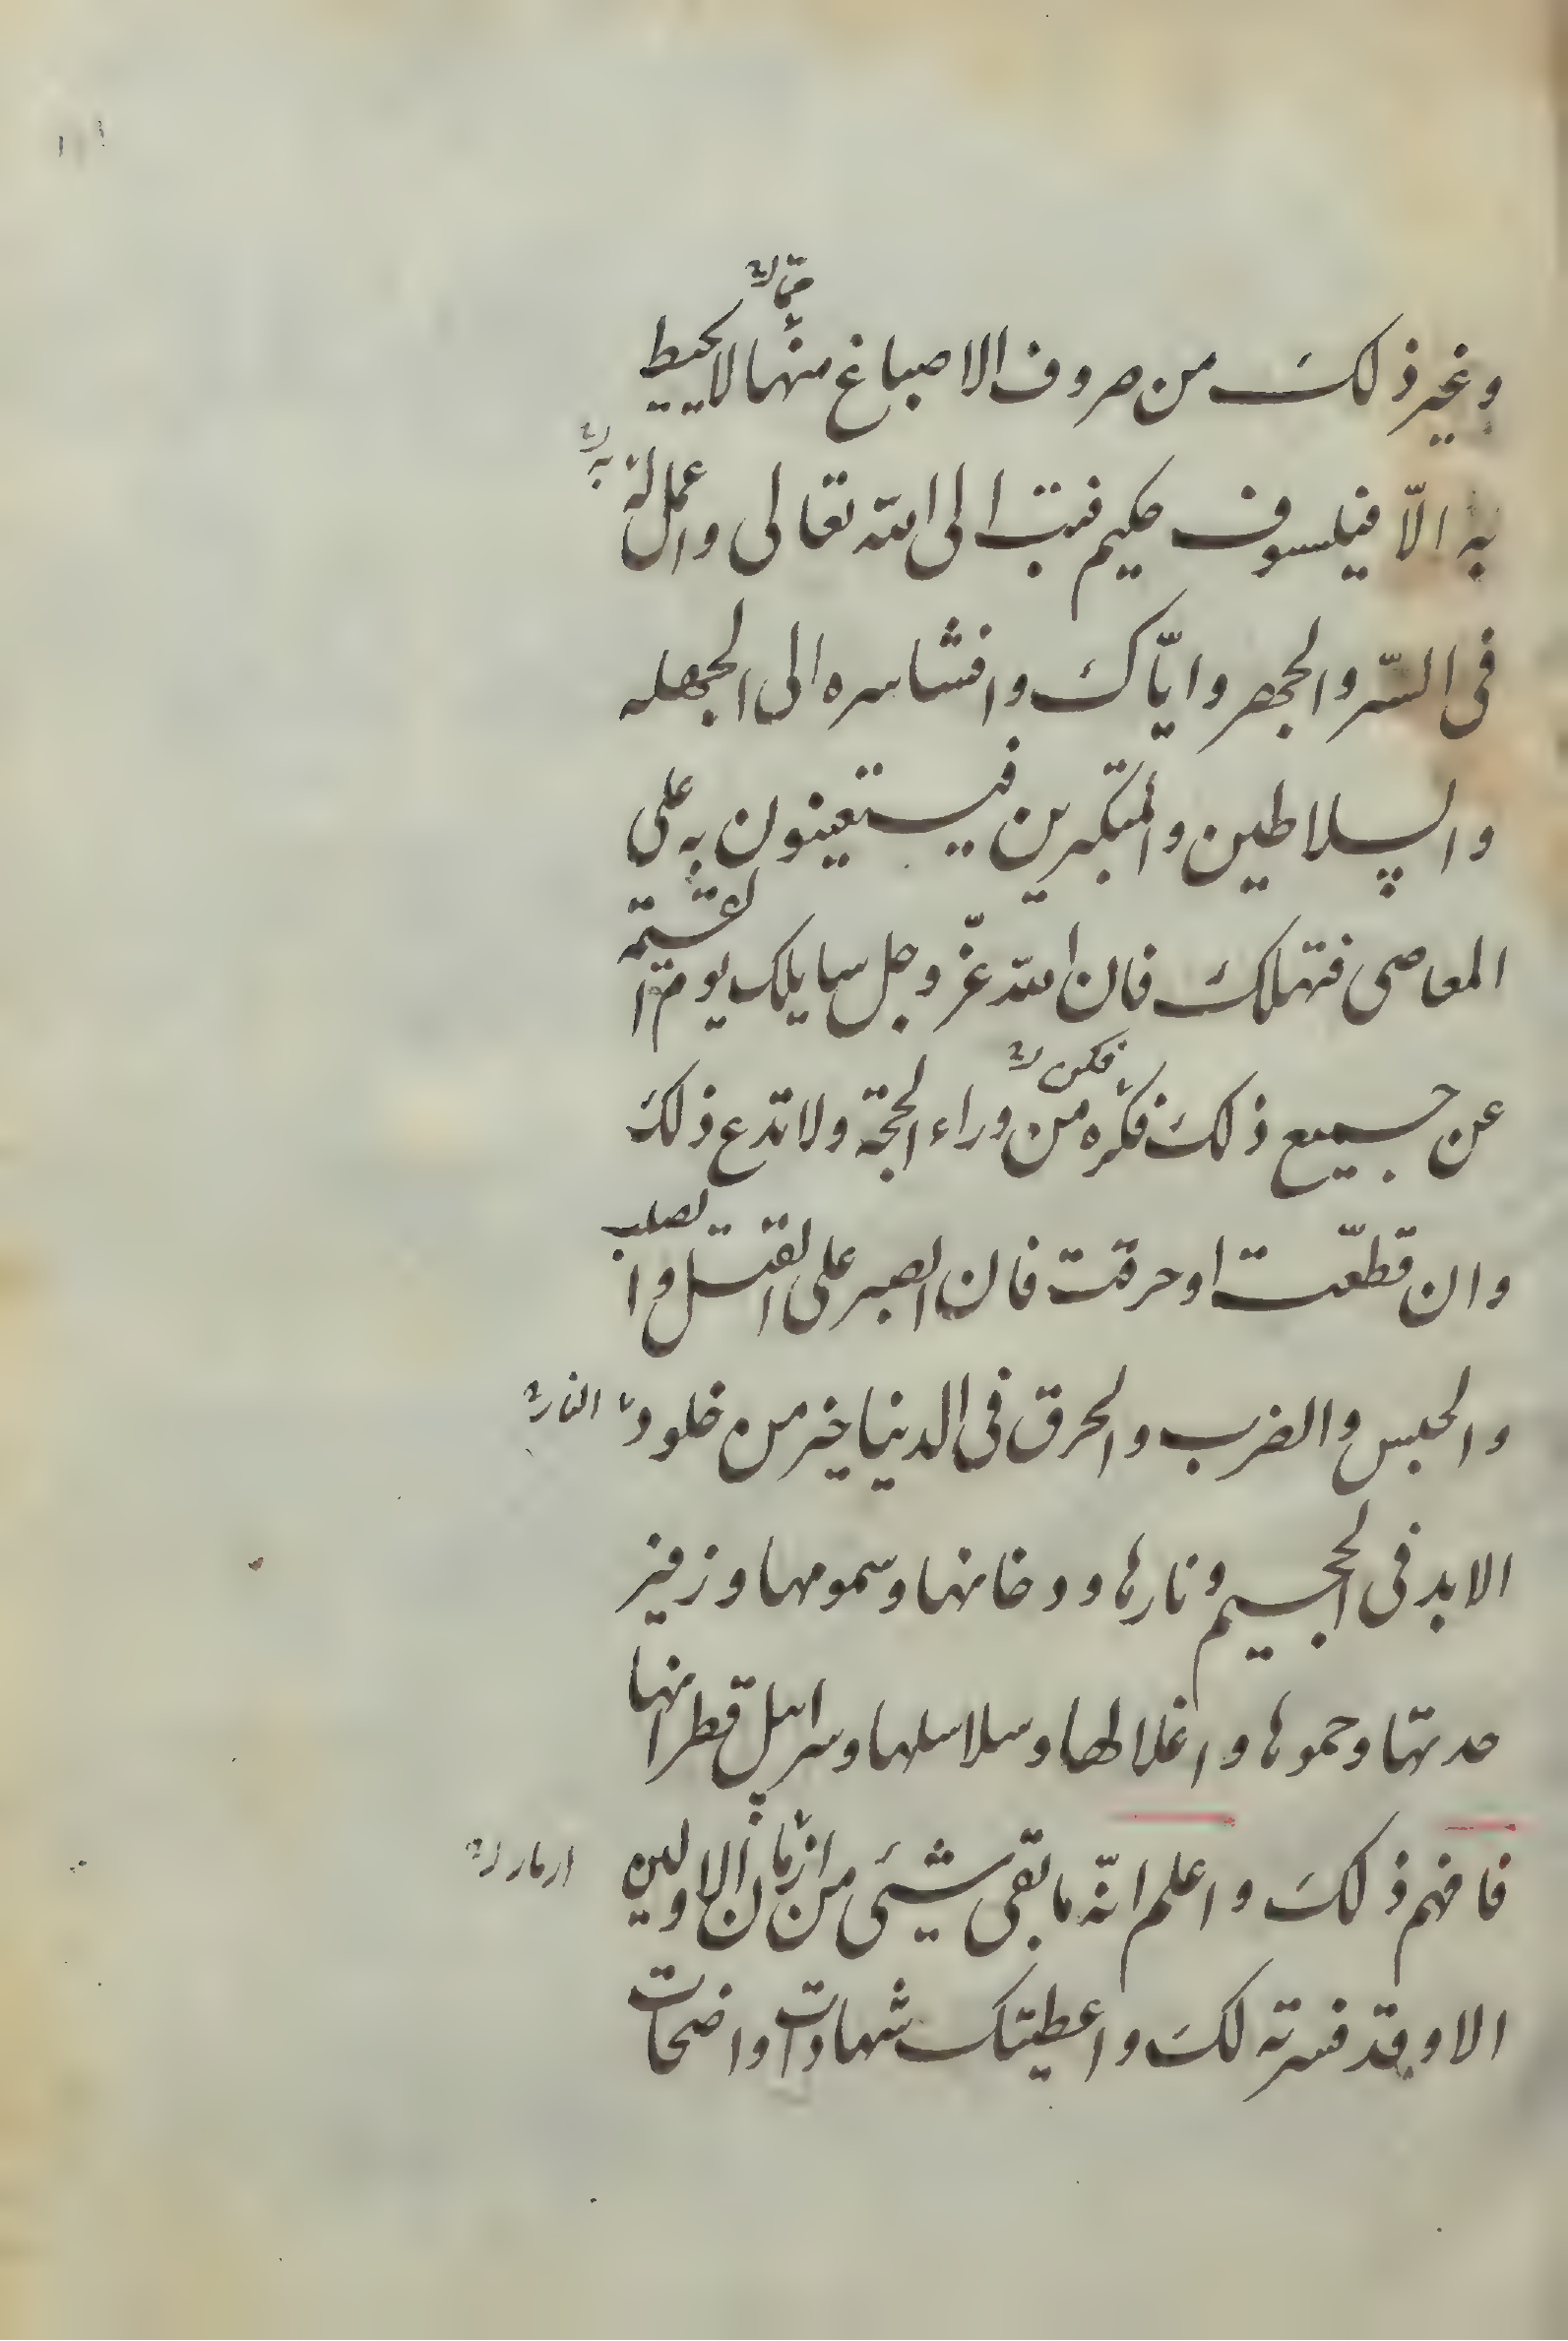 وغير ذلكَ من صروف الاصباغ منها لا يحيط
به الّا فيلسوف حكيم فتب الى الله تعالى واعمل له
فى السّر والجهر وايّاكَ وافشا سره الى الجهله
والسلاطين والمتكبرين فيستعينون به على
المعاصى فتهلكَ فان الله عزّ وجل سايلك يوم القيمة
فكن
عن جميع ذلكَ فكره من وراء الحجة ولا تدع ذلكَ
وان قطّعت او حرقت فان الصبر على القتل والصلب
والحبس والضرب والحرق فى الدنيا خير من خلود
النار
الابد فى الجحيم ونارها ودخانها وسمومها وزفير
حدتها وحموها واغلالها وسلاسلها وسرابيل قطرانها
فافهم ذلكَ واعلم انّه ما بقى شيئ من ازمان الاولين
الا وقد فسرته لكَ واعطيتك شهادات واضحات